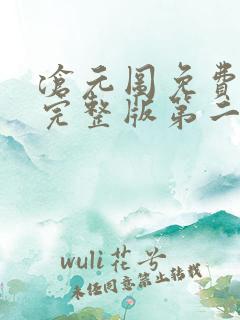 滄元圖免費
完整版第二
wuli花兮
未经同意禁止转载